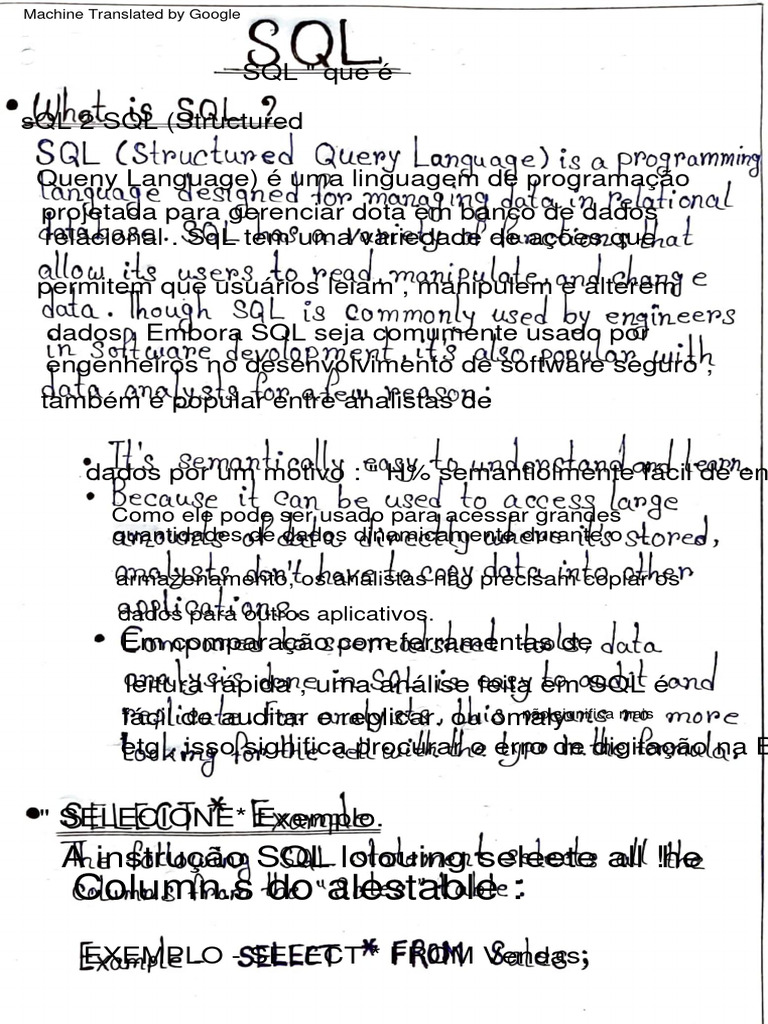 Machine Translated by Google
SQL
SQL " que é
• What is SQL ?
sQL 2 SQL (Structured
SQL (Structured Query Language) is a programming
Queny Language) é uma linguagem de programação
language designed for managing data in relational
projetada para gerenciar dota em banco de dados
database. SQL has a variety of functions that
relacional . SqL tem uma variedade de ações que
allow its users to read, manipulate, and change
permitem que usuários leiam , manipulem e alterem
data. Though SQL is commonly used by engineers
dados . Embora SQL seja comumente usado por
in software devolopment, it's also popular with
engenheiros no desenvolvimento de software seguro ,
data analysts for a few reason:
também é popular entre analistas de
• It's semantically easy to understand and learn.
dados por um motivo : " H)% semantiolmente fácil de en
• Because it can be used to access large
Como ele pode ser usado para acessar grandes
amounts of data directly where its stored,
quantidades de dados dinamicamente durante o
analysts don't have to copy data into other
armazenamento, os analistas não precisam copiar os
applications.
dados para outros aplicativos.
• Compared to spreadsheet tools, data
Em comparação com ferramentas de
analysis done in SQL is easy to audit and
leitura rápida , uma análise feita em SQL é
replicate. For analysts, this means no more
fácil de auditar e replicar. ou omaly
não significa mais
Looking for the cell with the typo in the formula.
etgl , isso significa procurar o erro de digitação na E
• SELECT * Example
" SELECIONE * Exemplo.
The following SQL statement selects all the
A instrução SQL lolouing selecte all !le
columns from the "Sales" table:
Column.s do alestable :
Example - SELECT * FROM Sales ;
EXEMPLO - SELECT * FROM Vendas;